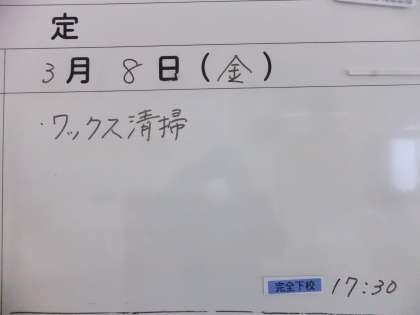 定
3月 8日(金)
・ワックス清掃
完全下校 17:30